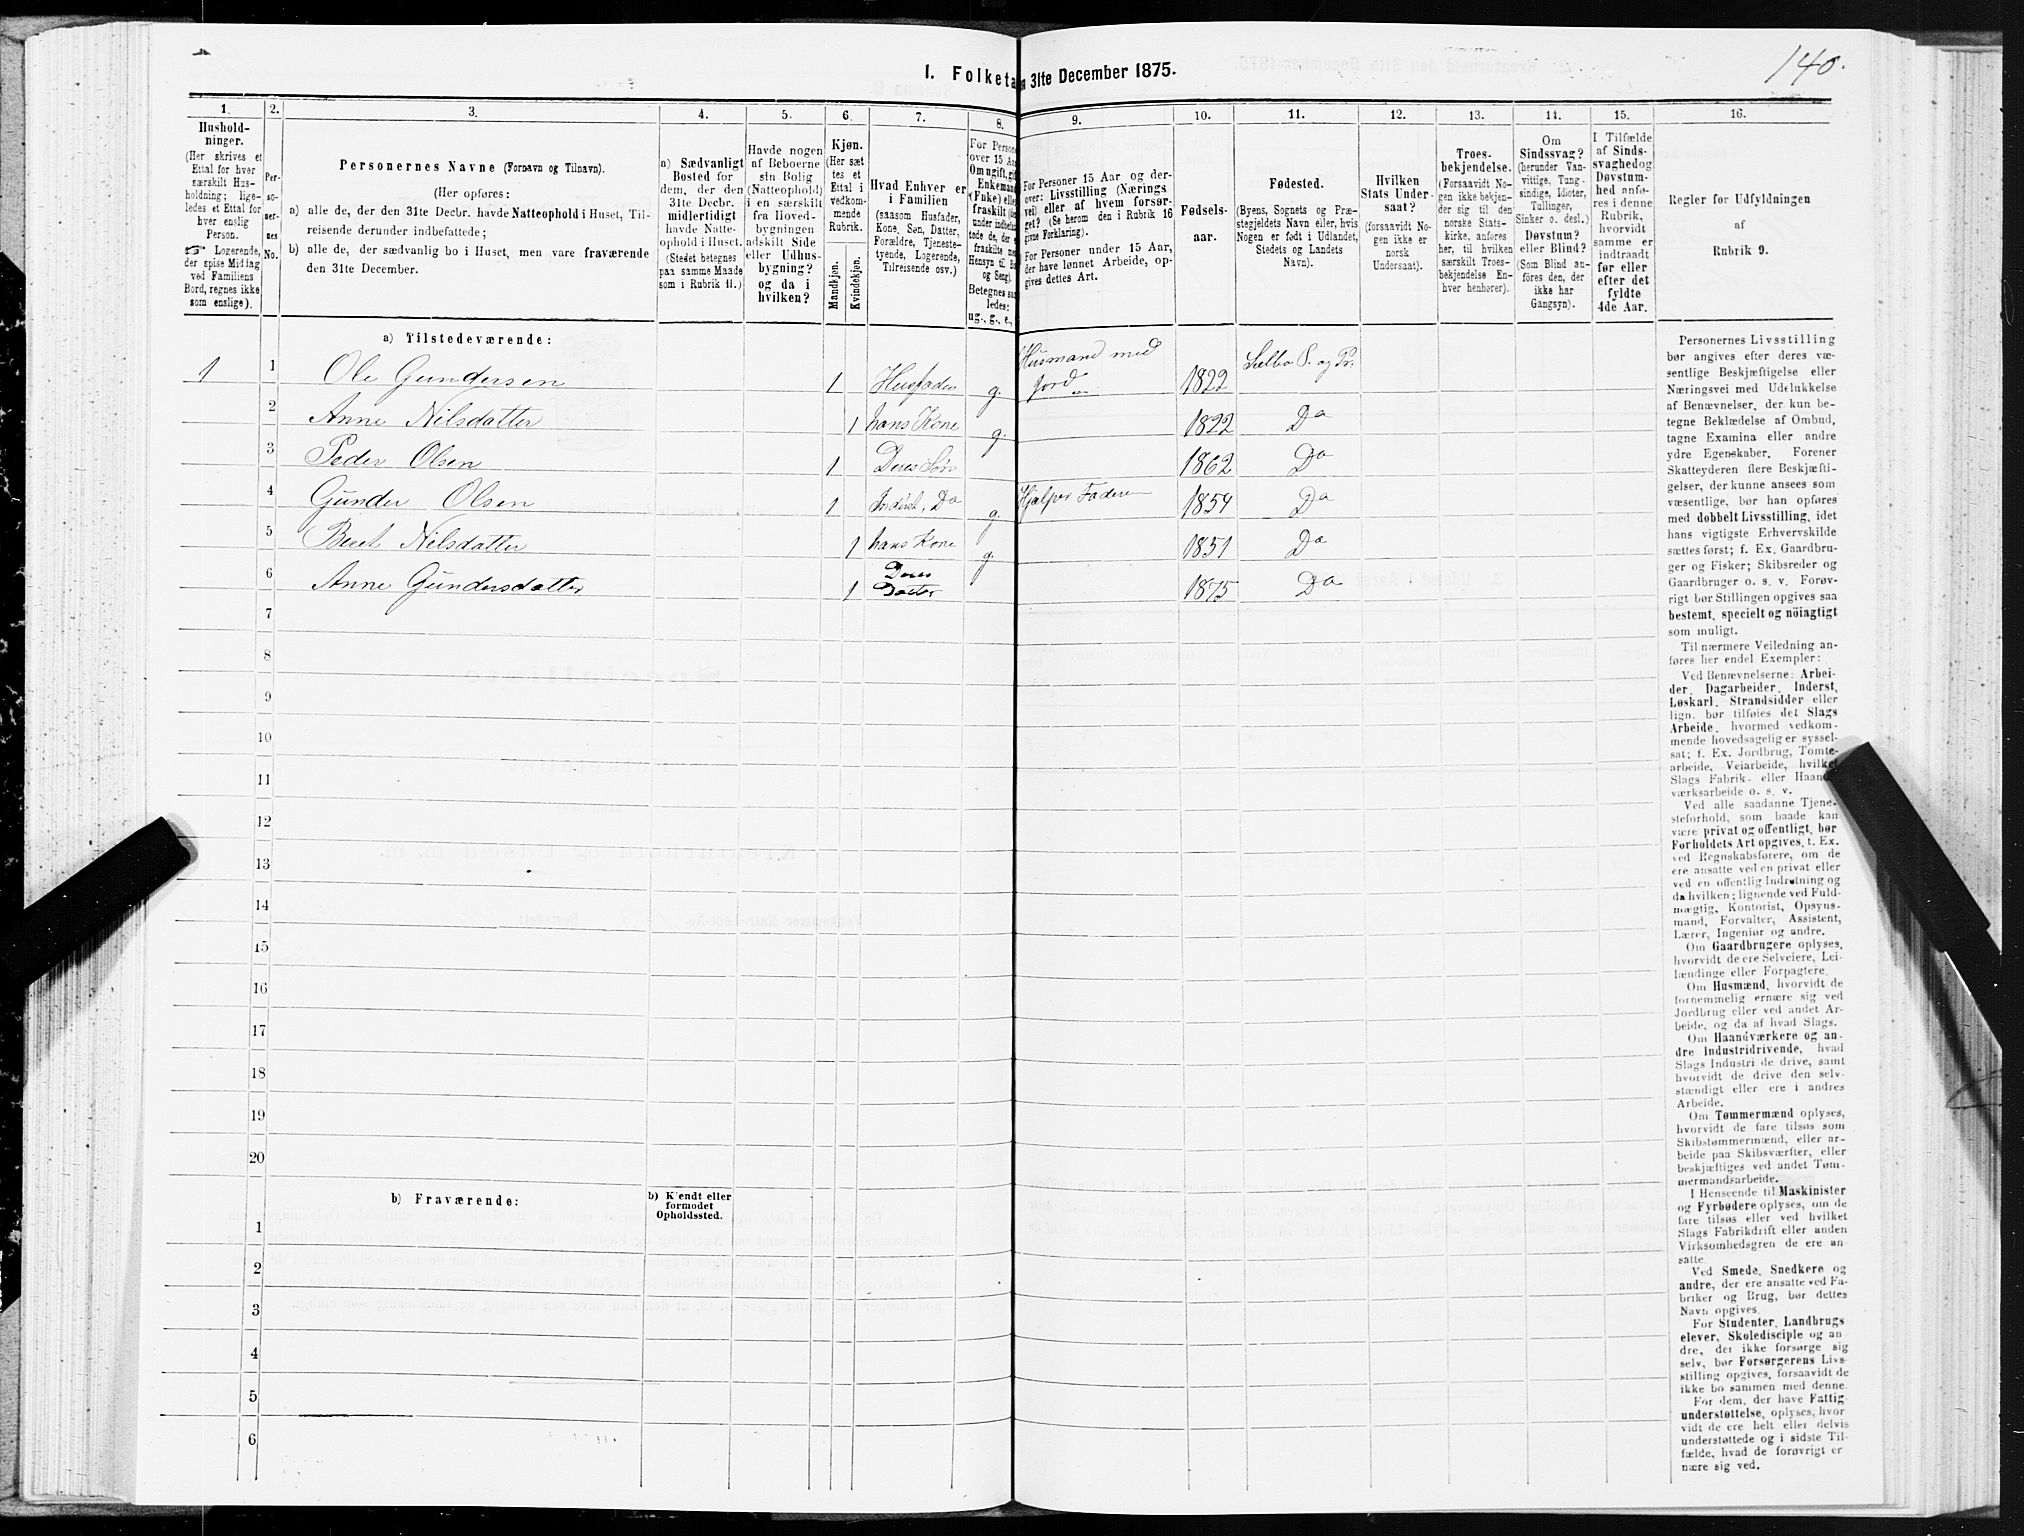 140.
I. Folketa
n 31te December 1875.
1.
2.
3.
4.
5.
6.
7.
8.
9.
10.
11.
12.
13.
14.
15.
16.
Hushold-
ninger.
(Her skrives et
Ettal for hver
særskilt Hus-
holdning; lige-
ledes et Ettal for
hver enslig
Person.
Logerende,
der spise Middag
ved Familiens
Bord, regnes ikke
som enslige).
Per-
so-
ner-
nes
No.
Personernes Navne (Fornavn og Tilnavn).
(Her opføres:
a) alle de, der den 31te Decbr. havde Natteophold i Huset, Til-
reisende derunder indbefattede;
b) alle de, der sædvanlig bo i Huset, men vare fraværende
den 31te December.
a) Sædvanligt
Bosted for
dem, der den
31te Decbr.
midlertidigt
havde Natte-
ophold i Huset.
(Stedet betegnes
paa samme Maade
som i Rubrik 11.)
Havde nogen
af Beboerne
sin Bolig
(Natteophold)
i en særskilt
fra Hoved-
bygningen
adskilt Side
eller Udhus-
bygning?
og da i
hvilken?
Kjøn.
(Her sæt
tes et
Ettal i
vedkom-
mende
Rubrik.
Mandkjøn.
Kvindekjøn.
Hvad Enhver er
i Familien
(saasom Husfader,
Kone, Søn, Datter,
Forældre, Tjeneste-
tyende, Logerende,
Tilreisende osv.)
For Person
over 15 Aa
Om ugift, gif
Enkemand
(Fuke) elle
fraskilt (de
under indbefat
tede de, der e
fraskilte med
Hensyn til Bo
og Seng).
Betegnes saa
ledes:
ug., g., e.,
For Personer 15 Aar og der-
over: Livsstilling (Nærings
vei) eller af hvem forsør-
get? (Se herom den i Rubrik 16
givne Forklaring).
For Personer under 15 Aar,
der have lønnet Arbeide, op-
gives dettes Art.
Fødsels-
aar.
Fødested.
(Byens, Sognets og Præ-
stegjeldets Navn eller, hvis
Nogen er født i Udlandet,
Stedets og Landets
Navn).
Hvilken
Stats Under-
saat?
(forsaavidt No-
gen ikke er
norsk
Undersaat).
Troes-
bekjendelse.
(Forsaavidt No-
gen ikke bekjen-
der sig til den
norske Stats-
kirke, anføres
her, til hvilken
særskilt Troes-
bekjendelse En-
hver henhører).
Om
Sindssvag?
(herunder Van-
vittige, Tung-
sindige, Idioter,
Tullinger,
Sinker o. desl.)
Døvstum?
eller Blind?
(Som Blind an-
føres den, der
ikke har
Gangsyn).
I Tilfælde
af Sinds-
svaghed og
Døvstum-
hed anfø-
res i denne
Rubrik,
hvorvidt
samme er
indtraadt
før eller
efter det
fyldte
4de Aar.
Regler for Udfyldningen
af
Rubrik 9.
a) Tilstedeværende:
1 1 Ole Gundersen 1 Husfader g. Husmand med
Jord 1822 Selbo S. og Pr.
2 Anne Nilsdatter 1 hans Kone g. 1822 Do
3 Peder Olsen 1 Deres Søn 1862 Do
4 Gunder Olsen 1 Inderst, Do g. Hjælper Faderen 1854 Do
5 Beret Nilsdatter 1 hans Kone g. 1851 Do
6 Anne Gundersdatter 1 Deres
Datter 1875 Do
7
8
9
10
11
12
13
14
15
16
17
18
19
20
b) Fraværende:
b) Kjendt eller
formodet
Opholdssted.
1
2
3
4
5
6
Personernes Livsstilling
bør angives efter deres væ-
sentlige Beskjæftigelse eller
Næringsvei med Udelukkelse
af Benævnelser, der kun be-
tegne Beklædelse af Ombud,
tagne Examina eller andre
ydre Egenskaber. Forener
Skatteyderen flere Beskjæfti-
gelser, der kunne ansees som
væsentlige, bør han opføres
med dobbelt Livsstilling, idet
hans vigtigste Erhvervskilde
sættes først; f. Ex. Gaardbru-
ger og Fisker; Skibsreder og
Gaardbruger o. s. v. Forøv-
rigt bør Stillingen opgives saa
bestemt, specielt og nöiagtigt
som muligt.
Til nærmere Veiledning an-
føres her endel Exempler:
Ved Benævnelserne: Arbei-
der, Dagarbeider, Inderst,
Løskarl, Strandsidder eller
lign. bør tilføies det Slags
Arbeide, hvormed vedkom-
mende hovedsagelig er syssel-
sat; f. Ex. Jordbrug, Tomte-
arbeide, Veiarbeide, hvilket
Slags Fabrik- eller Haand-
værksarbeide o. s. v.
Ved alle saadanne Tjene-
steforhold, som baade kan
være privat og offentligt, bør
Forholdets Art opgives, t. Ex.
ved Regnskabsførere, om de
ere ansatte ved en privat eller
ved en offentlig Indretning og
da hvilken; lignende ved Fuld-
mægtig, Kontorist, Opsyns-
mand, Forvalter, Assistent,
Lærer, Ingeniør og andre.
Om Gaardbrugere oplyses,
hvorvidt de ere Selveiere, Lei-
lændinge eller Forpagtere.
Om Husmænd, hvorvidt de
fornemmelig ernære sig ved
Jordbrug eller ved andet Ar-
beide, og da af hvad Slags.
Om Haandværkere og an-
dre Industridrivende, hvad
Slags Industri de drive, samt
hvorvidt de drive den selv-
stændigt eller ere i andres
Arbeide.
Om Tømmermænd oplyses,
hvorvidt de fare tilsøs som
Skibstømmermænd, eller ar-
beide paa Skibsværfter, eller
beskjæftiges ved andet Tøm-
mermandsarbeide.
I Henseende til Maskinister
og Fyrbødere oplyses, om de
fare tilsøs eller ved hvilket
Slags Fabrikdrift eller anden
Virksomhedsgren de ere an-
satte.
Ved Smede, Snedkere og
andre, der ere ansatte ved Fa-
briker og Brug, bør dettes
Navn opgives.
For Studenter, Landbrugs
elever, Skoledisciple og an-
dre, der ikke forsørge sig
selv, bør Forsørgerens Livs-
stilling opgives, forsaavidt de
ikke bo sammen med denne.
For dem, der have Fattig
understøttelse, oplyses, hvor
vidt de ere helt eller delvis
understøttede og i sidste Til-
fælde, hvad de forøvrigt er
nære sig ved.